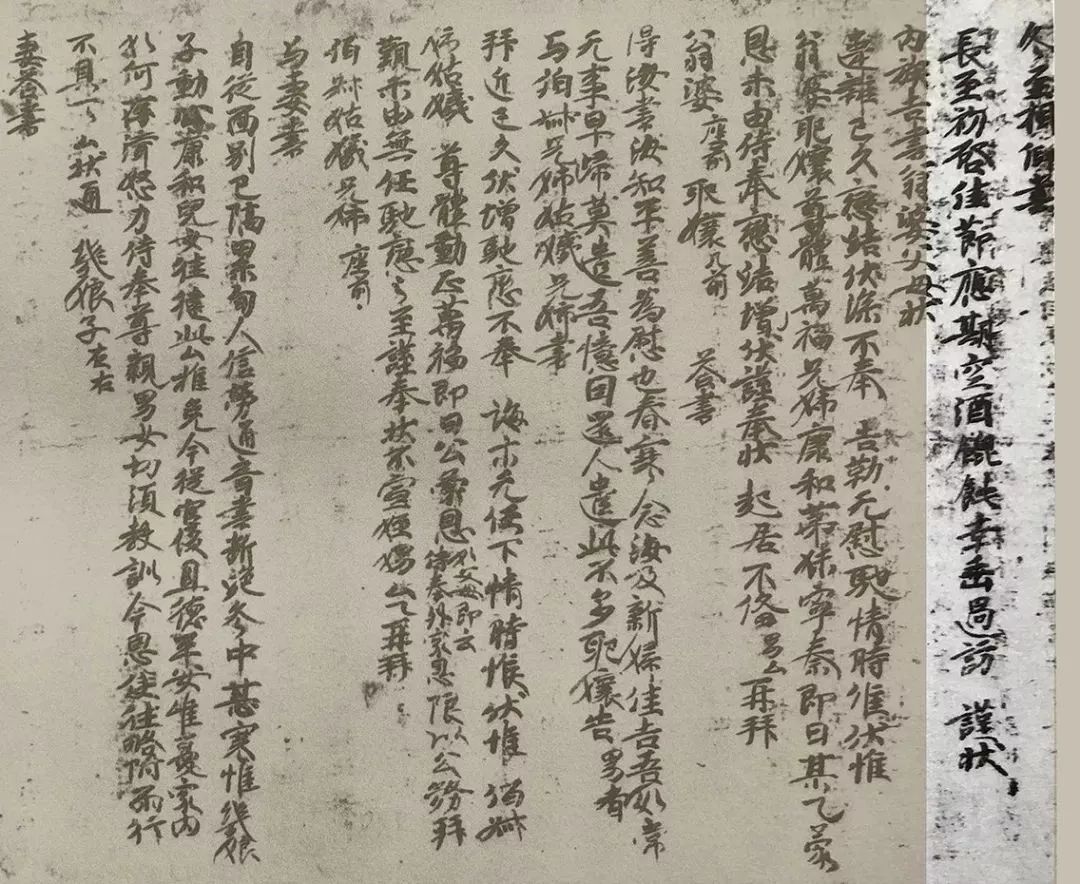 冬至相迎書
長至初啓佳節應期空酒餛飩幸垂過訪 謹狀
内族吉書翁婆父母狀
違離已久戀結伏深不奉 吉勒无慰馳情時候伏惟
翁婆耶孃尊體萬福兄姊康和弟保寧泰即日某乙蒙
恩未由侍奉戀結增伏謹奉狀 起居不俻 某乙再拜
翁婆 座前 耶孃 几前 荅書
得汝書汝知平善為慰也春寒念汝及新婦佳吉吾如常
无事早歸莫造吾憶因還人遣此不多耶孃告 男省
与伯叔兄姊姑孃兄姊書
拜近已久伏增馳戀不奉 誨示无任下情時候伏惟 伯叔
姑孃 尊體動止萬福即日公蒙恩 限以公務拜
覲未由無任馳戀之至謹奉狀不宣姪甥厶乙再拜
伯叔姑孃兄姊 座前
与妻書
自從面別已隔累旬人信勞通音書斷絶冬中甚寒惟幾娘
子動止康和兒女佳健此厶推免今從官役且德平安惟憂家内
如何存濟努力侍奉尊親男女切須教訓今恩往略附兩行
不具厶狀通 幾娘子左右
妻荅書